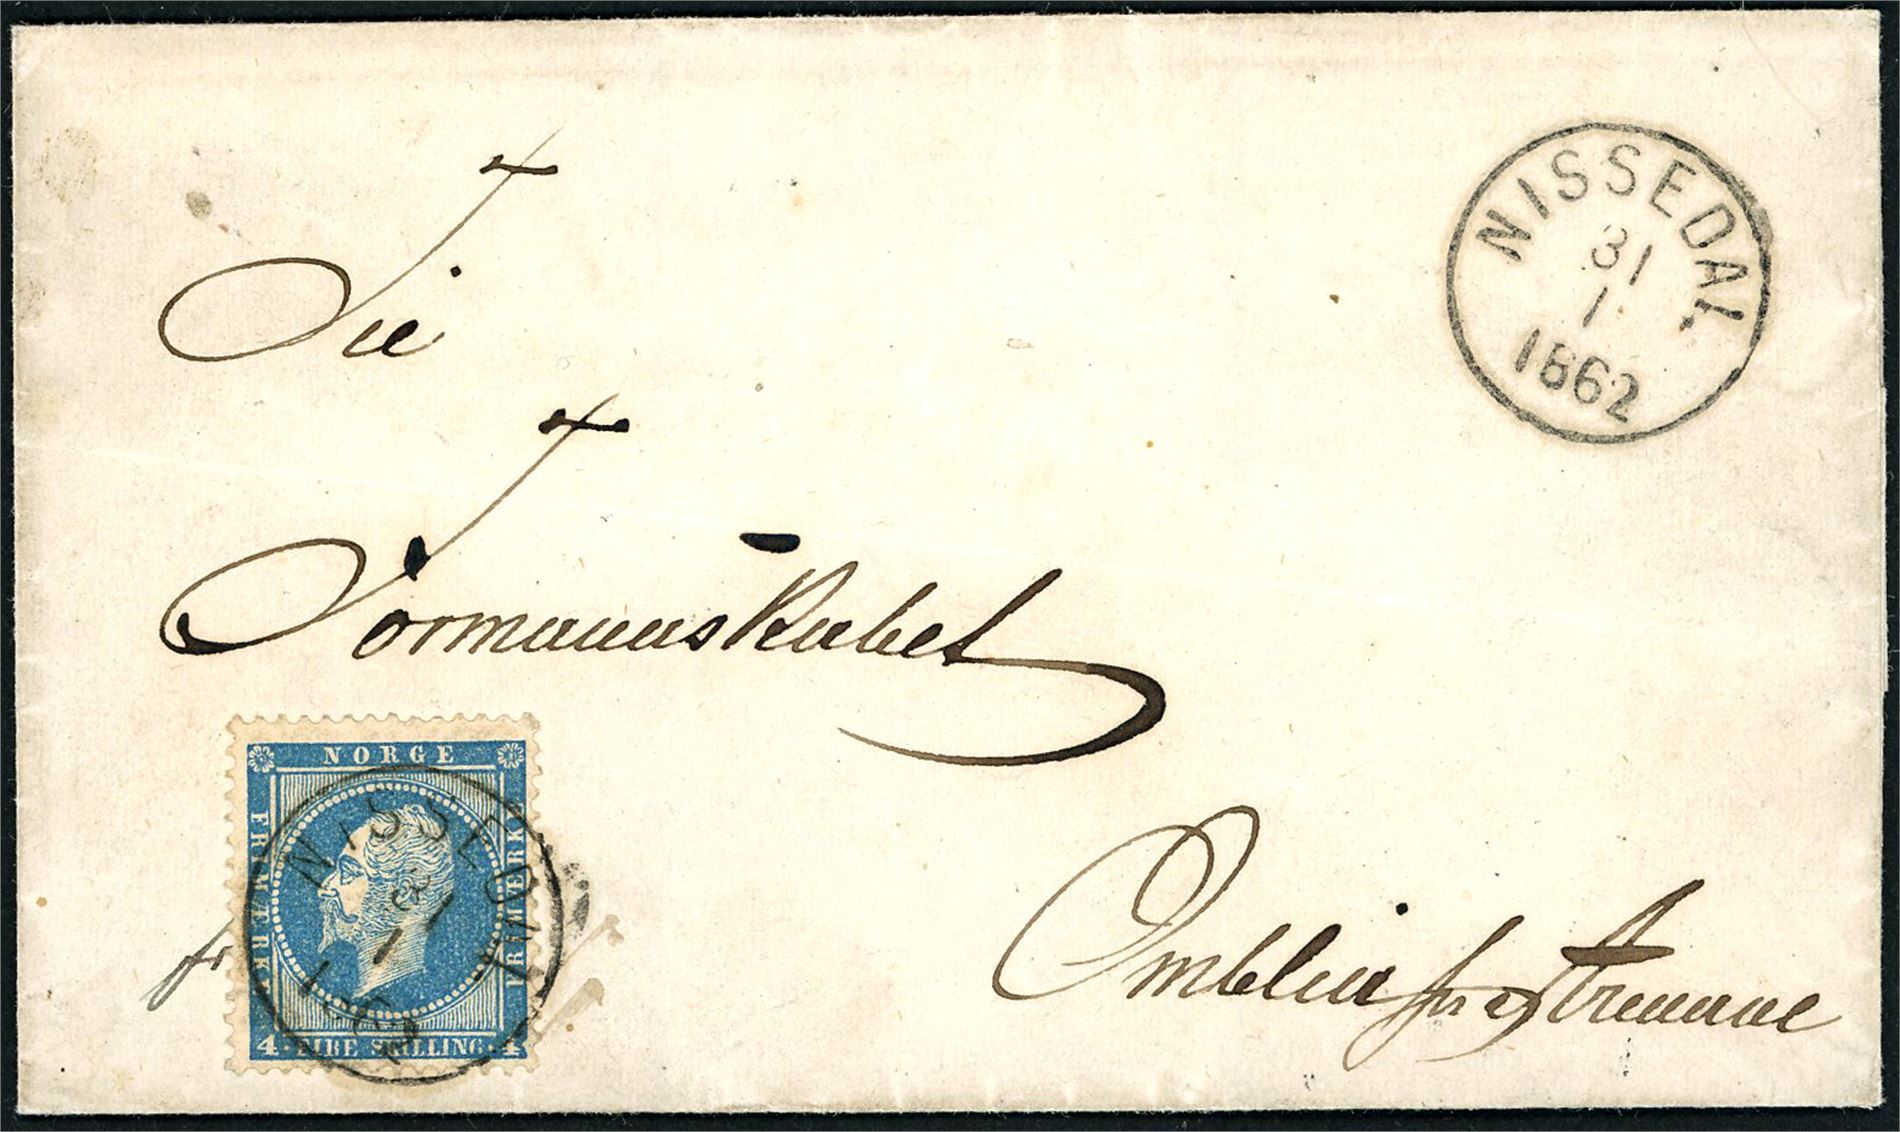 NISSEDAL
31
1
1862
Til
Formannskabet
fr
NORGE
FRIMÆRKE
FRIMÆRKE
4 · FIRE SKILLING · 4
NISSEDAL
31
1
1862